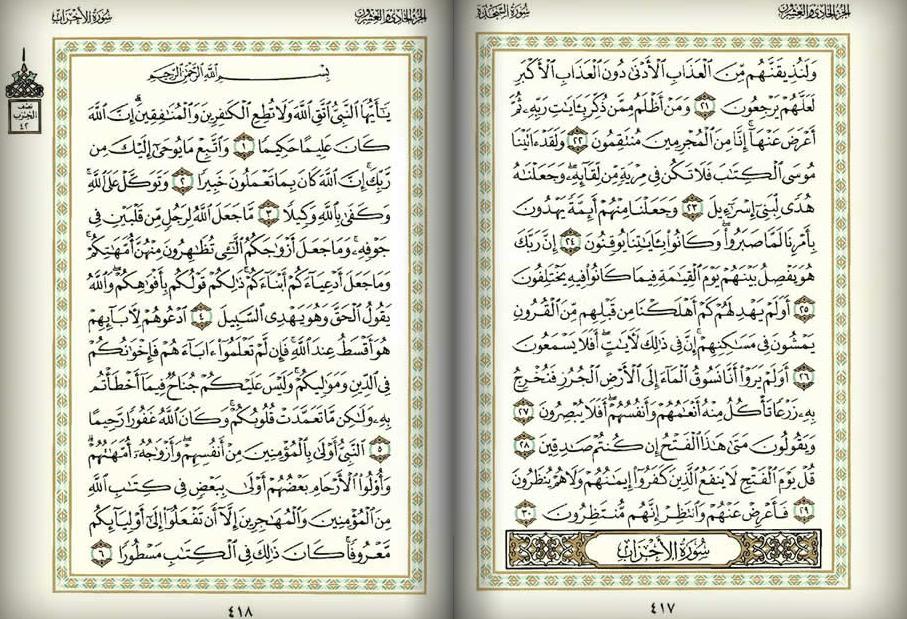 الجزء الحادي والعشرون
سُورَةُ السَّجْدَةِ
وَلَنُذِيقَنَّهُم مِّنَ الْعَذَابِ الْأَدْنَىٰ دُونَ الْعَذَابِ الْأَكْبَرِ
لَعَلَّهُمْ يَرْجِعُونَ ٢١ وَمَنْ أَظْلَمُ مِمَّن ذُكِّرَ بِـَٔايَٰتِ رَبِّهِۦ ثُمَّ
أَعْرَضَ عَنْهَآ إِنَّا مِنَ الْمُجْرِمِينَ مُنتَقِمُونَ ٢٢ وَلَقَدْ ءَاتَيْنَا
مُوسَى الْكِتَٰبَ فَلَا تَكُن فِي مِرْيَةٍ مِّن لِّقَآئِهِۦ وَجَعَلْنَٰهُ
هُدًى لِّبَنِيٓ إِسْرَٰٓءِيلَ ٢٣ وَجَعَلْنَا مِنْهُمْ أَئِمَّةً يَهْدُونَ
بِأَمْرِنَا لَمَّا صَبَرُوا۟ وَكَانُوا۟ بِـَٔايَٰتِنَا يُوقِنُونَ ٢٤ إِنَّ رَبَّكَ
هُوَ يَفْصِلُ بَيْنَهُمْ يَوْمَ الْقِيَٰمَةِ فِيمَا كَانُوا۟ فِيهِ يَخْتَلِفُونَ
٢٥ أَوَلَمْ يَهْدِ لَهُمْ كَمْ أَهْلَكْنَا مِن قَبْلِهِم مِّنَ الْقُرُونِ
يَمْشُونَ فِي مَسَٰكِنِهِمْ إِنَّ فِي ذَٰلِكَ لَـَٔايَٰتٍ أَفَلَا يَسْمَعُونَ
٢٦ أَوَلَمْ يَرَوْا۟ أَنَّا نَسُوقُ الْمَآءَ إِلَى الْأَرْضِ الْجُرُزِ فَنُخْرِجُ
بِهِۦ زَرْعًا تَأْكُلُ مِنْهُ أَنْعَٰمُهُمْ وَأَنفُسُهُمْ أَفَلَا يُبْصِرُونَ ٢٧
وَيَقُولُونَ مَتَىٰ هَٰذَا الْفَتْحُ إِن كُنتُمْ صَٰدِقِينَ ٢٨
قُلْ يَوْمَ الْفَتْحِ لَا يَنفَعُ الَّذِينَ كَفَرُوٓا۟ إِيمَٰنُهُمْ وَلَا هُمْ يُنظَرُونَ
٢٩ فَأَعْرِضْ عَنْهُمْ وَانتَظِرْ إِنَّهُم مُّنتَظِرُونَ ٣٠
سُورَةُ الْأَحْزَابِ
٤١٧
الجزء الحادي والعشرون
سُورَةُ الْأَحْزَابِ
نصف
الحزب
٤٢
بِسْمِ اللَّهِ الرَّحْمَٰنِ الرَّحِيمِ
يَٰٓأَيُّهَا النَّبِيُّ اتَّقِ اللَّهَ وَلَا تُطِعِ الْكَٰفِرِينَ وَالْمُنَٰفِقِينَ إِنَّ اللَّهَ
كَانَ عَلِيمًا حَكِيمًا ١ وَاتَّبِعْ مَا يُوحَىٰٓ إِلَيْكَ مِن
رَّبِّكَ إِنَّ اللَّهَ كَانَ بِمَا تَعْمَلُونَ خَبِيرًا ٢ وَتَوَكَّلْ عَلَى اللَّهِ
وَكَفَىٰ بِاللَّهِ وَكِيلًا ٣ مَّا جَعَلَ اللَّهُ لِرَجُلٍ مِّن قَلْبَيْنِ فِي
جَوْفِهِۦ وَمَا جَعَلَ أَزْوَٰجَكُمُ الَّٰٓـِٔي تُظَٰهِرُونَ مِنْهُنَّ أُمَّهَٰتِكُمْ
وَمَا جَعَلَ أَدْعِيَآءَكُمْ أَبْنَآءَكُمْ ذَٰلِكُمْ قَوْلُكُم بِأَفْوَٰهِكُمْ وَاللَّهُ
يَقُولُ الْحَقَّ وَهُوَ يَهْدِي السَّبِيلَ ٤ ادْعُوهُمْ لِـَٔابَآئِهِمْ
هُوَ أَقْسَطُ عِندَ اللَّهِ فَإِن لَّمْ تَعْلَمُوٓا۟ ءَابَآءَهُمْ فَإِخْوَٰنُكُمْ
فِي الدِّينِ وَمَوَٰلِيكُمْ وَلَيْسَ عَلَيْكُمْ جُنَاحٌ فِيمَآ أَخْطَأْتُم
بِهِۦ وَلَٰكِن مَّا تَعَمَّدَتْ قُلُوبُكُمْ وَكَانَ اللَّهُ غَفُورًا رَّحِيمًا
٥ النَّبِيُّ أَوْلَىٰ بِالْمُؤْمِنِينَ مِنْ أَنفُسِهِمْ وَأَزْوَٰجُهُۥٓ أُمَّهَٰتُهُمْ
وَأُو۟لُوا۟ الْأَرْحَامِ بَعْضُهُمْ أَوْلَىٰ بِبَعْضٍ فِي كِتَٰبِ اللَّهِ
مِنَ الْمُؤْمِنِينَ وَالْمُهَٰجِرِينَ إِلَّآ أَن تَفْعَلُوٓا۟ إِلَىٰٓ أَوْلِيَآئِكُم
مَّعْرُوفًا كَانَ ذَٰلِكَ فِي الْكِتَٰبِ مَسْطُورًا ٦
٤١٨